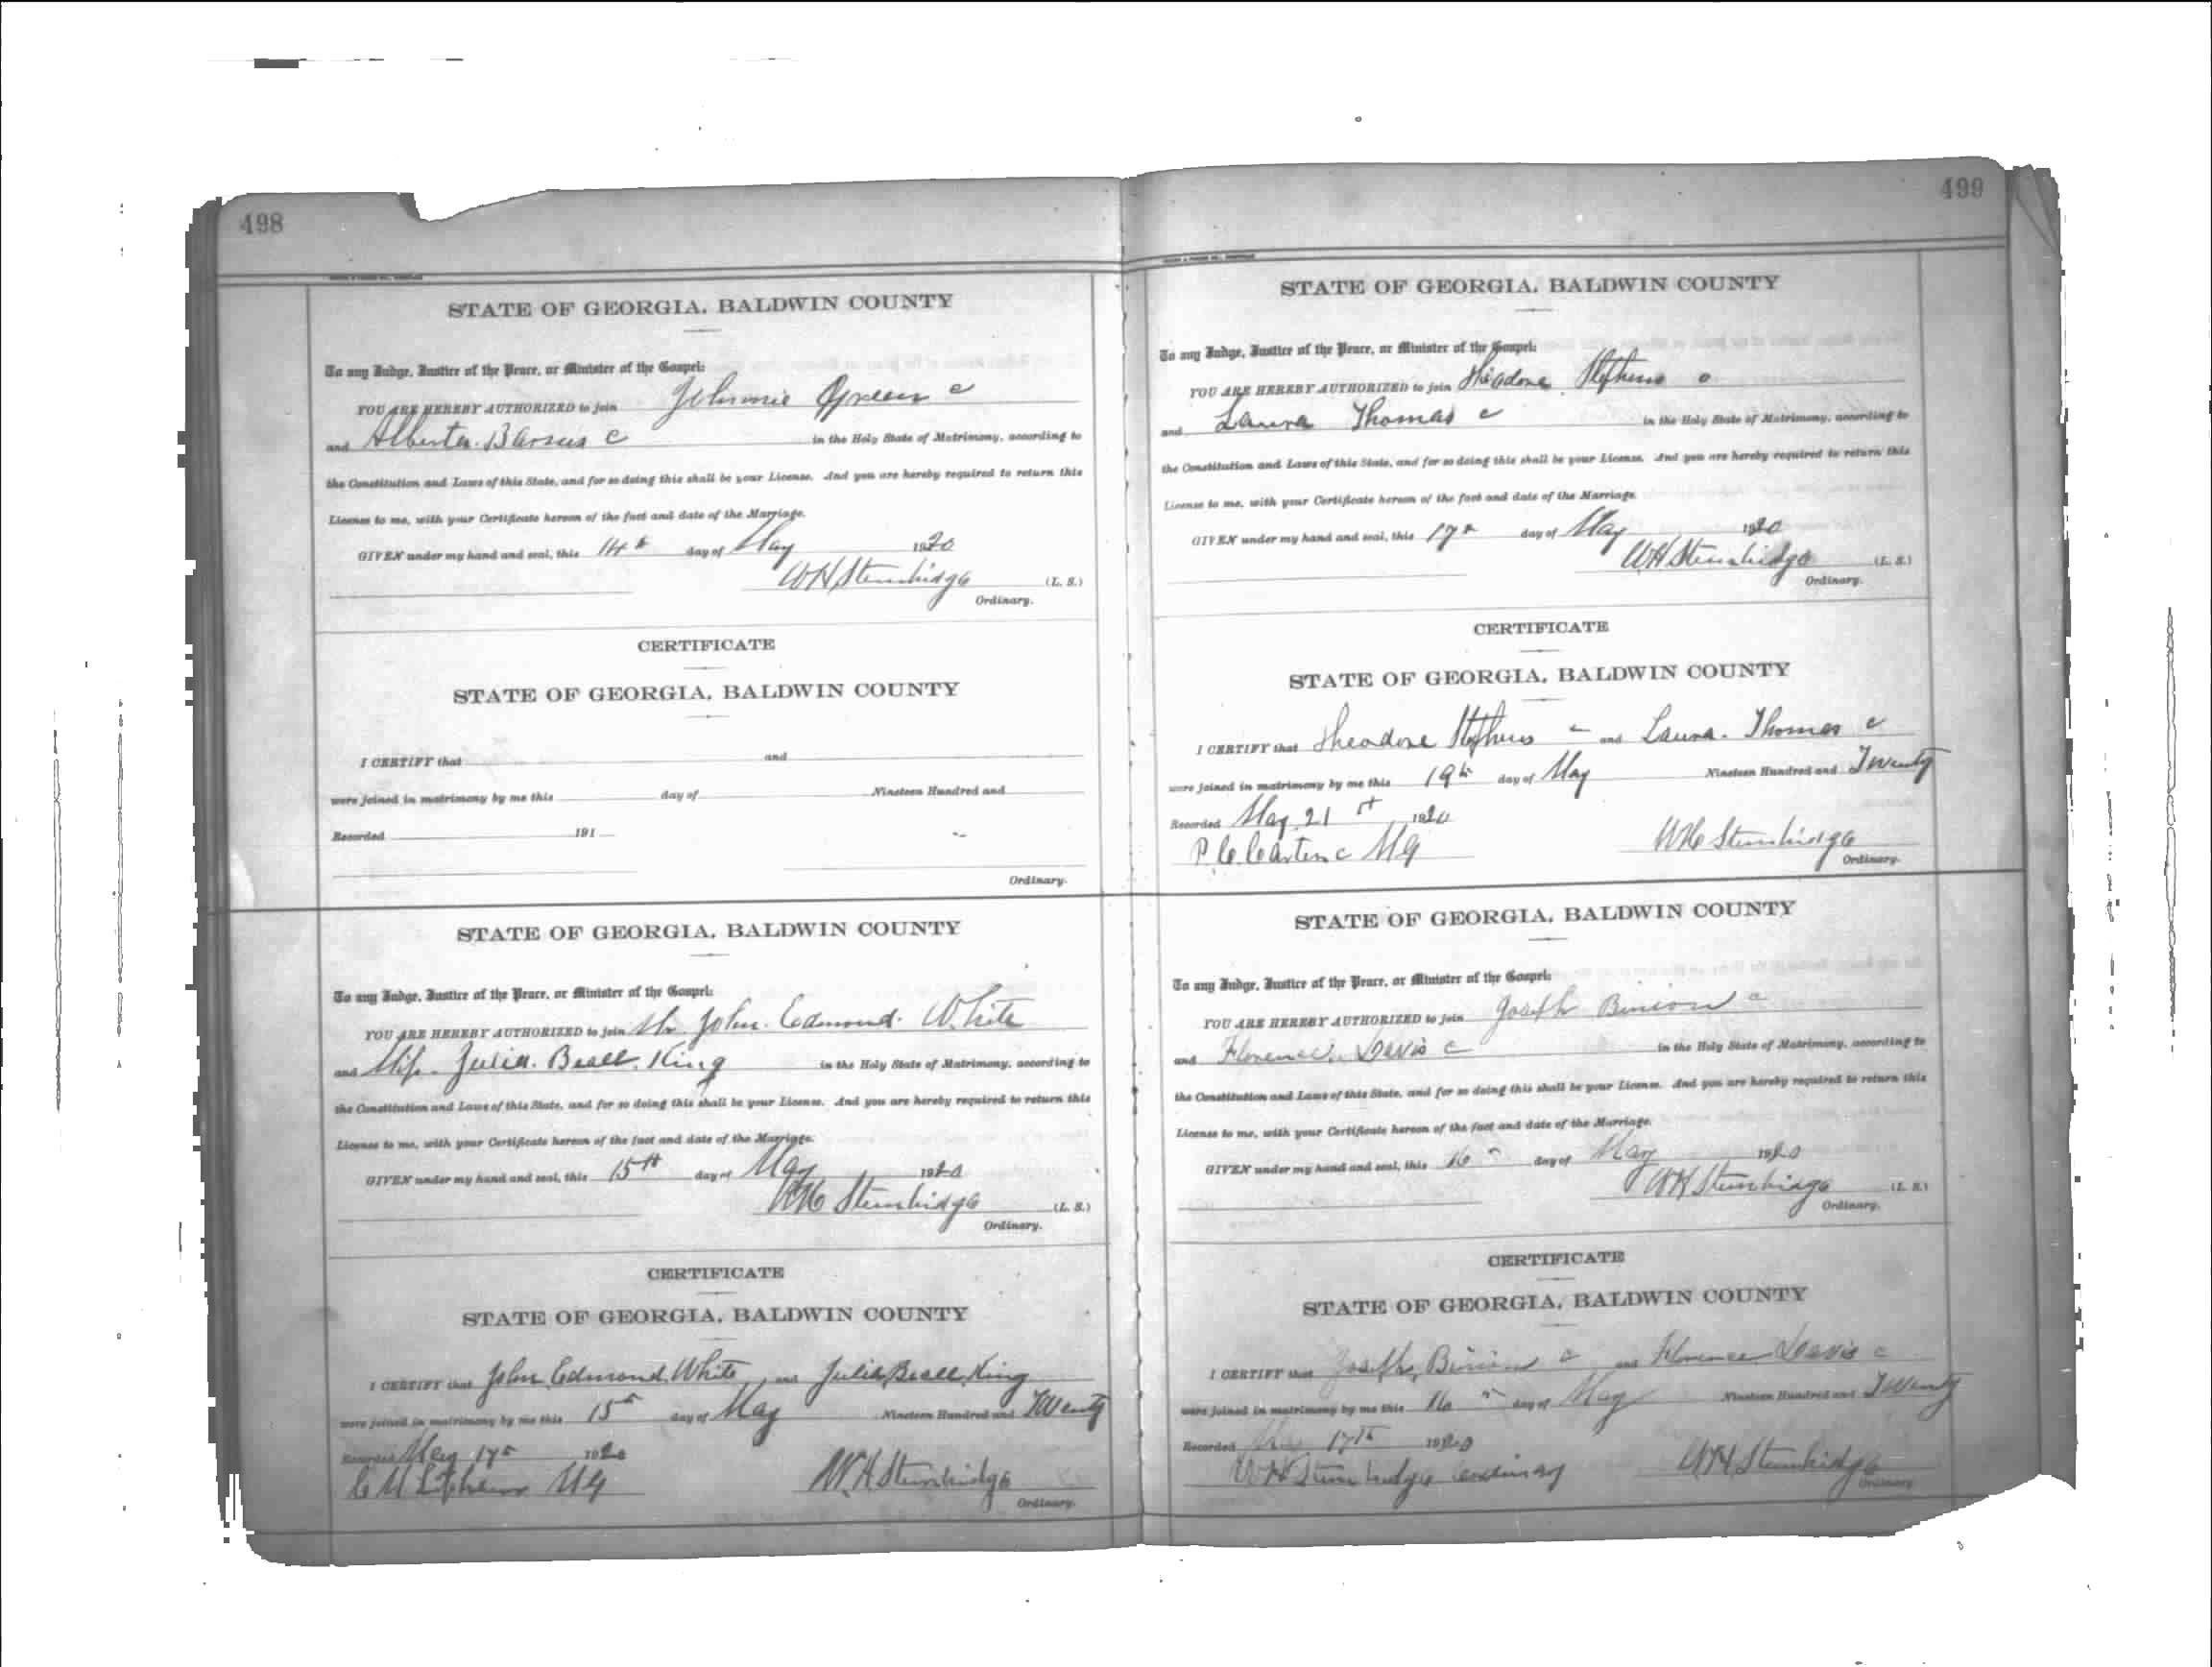 498
STATE OF GEORGIA, BALDWIN COUNTY
To any Judge, Justice of the Peace, or Minister of the Gospel:
YOU ARE HEREBY AUTHORIZED to join Johnnie Green c
and Alberta c in the Holy State of Matrimony, according to
the Constitution and Laws of this State, and for so doing this shall be your License. And you are hereby required to return this
License to me, with your Certificate hereon of the fact and date of the Marriage.
GIVEN under my hand and seal, this 14th day of May 1920
WH Stembridge (L. S.)
Ordinary.
CERTIFICATE
STATE OF GEORGIA, BALDWIN COUNTY
I CERTIFY that and
were joined in matrimony by me this day of Nineteen Hundred and
Recorded 191
Ordinary.
STATE OF GEORGIA, BALDWIN COUNTY
To any Judge, Justice of the Peace, or Minister of the Gospel:
YOU ARE HEREBY AUTHORIZED to join Mr John Edmond White
and Miss Julia Beall King in the Holy State of Matrimony, according to
the Constitution and Laws of this State, and for so doing this shall be your License. And you are hereby required to return this
License to me, with your Certificate hereon of the fact and date of the Marriage.
GIVEN under my hand and seal, this 15th day of May 1920
WH Stembridge (L. S.)
Ordinary.
CERTIFICATE
STATE OF GEORGIA, BALDWIN COUNTY
I CERTIFY that John Edmond White and Julia Beall King
were joined in matrimony by me this 15th day of May Nineteen Hundred and Twenty
Recorded May 17th 1920
MG W.H Stembridge
Ordinary.
499
STATE OF GEORGIA, BALDWIN COUNTY
To any Judge, Justice of the Peace, or Minister of the Gospel:
YOU ARE HEREBY AUTHORIZED to join Theodore Stephens c
and Laura Thomas c in the Holy State of Matrimony, according to
the Constitution and Laws of this State, and for so doing this shall be your License. And you are hereby required to return this
License to me, with your Certificate hereon of the fact and date of the Marriage.
GIVEN under my hand and seal, this 17th day of May 1920
WH Stembridge (L. S.)
Ordinary.
CERTIFICATE
STATE OF GEORGIA, BALDWIN COUNTY
I CERTIFY that Theodore Stephens c and Laura Thomas c
were joined in matrimony by me this 19th day of May Nineteen Hundred and Twenty
Recorded May 21st 1920
MG WH Stembridge
Ordinary.
STATE OF GEORGIA, BALDWIN COUNTY
To any Judge, Justice of the Peace, or Minister of the Gospel:
YOU ARE HEREBY AUTHORIZED to join Joseph Binion c
and Florence Davis c in the Holy State of Matrimony, according to
the Constitution and Laws of this State, and for so doing this shall be your License. And you are hereby required to return this
License to me, with your Certificate hereon of the fact and date of the Marriage.
GIVEN under my hand and seal, this 16th day of May 1920
WH Stembridge (L. S.)
Ordinary.
CERTIFICATE
STATE OF GEORGIA, BALDWIN COUNTY
I CERTIFY that Joseph Binion c and Florence Davis c
were joined in matrimony by me this 16th day of May Nineteen Hundred and Twenty
Recorded May 17th 1920
WH Stembridge Ordinary WH Stembridge
Ordinary